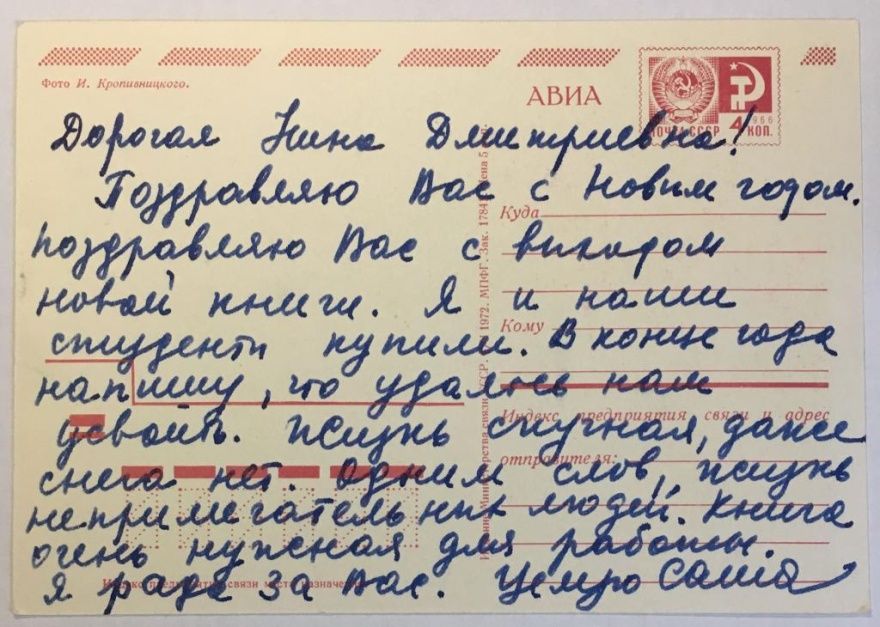 Фото И. Кропивницкого.
АВИА
ПОЧТА СССР 4 КОП.
1966
Дорогая Нина Дмитриевна!
Поздравляю Вас с Новым годом.
Поздравляю Вас с выходом
новой книги. Я и наши
студенты купили. В конце года
напишу, что удалось нам
усвоить. Жизнь скучная, даже
снега нет. Одним слов, жизнь
непримечательных людей. Книга
очень нужная для работы.
Я рада за Вас. Целую Саша
Куда
Кому
Индекс предприятия связи и адрес
отправителя:
Министерства связи СССР. 1972. МПФГ. Зак. 1784 Цена 5
Индекс предприятия связи места назначения